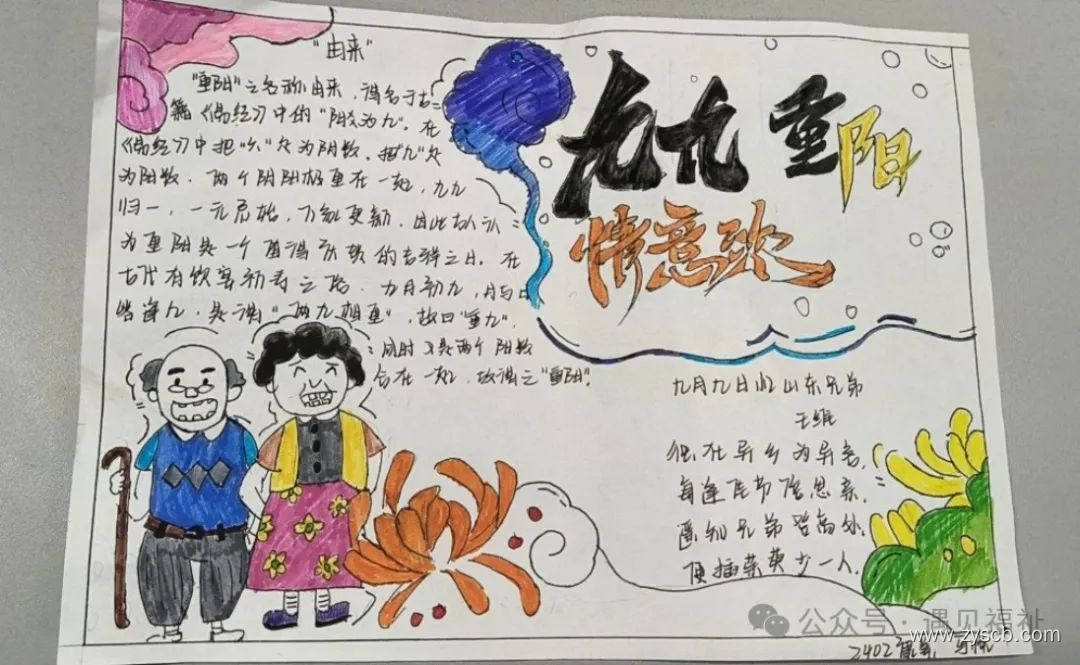 "由来"
"重阳"之名称由来,得名于古
籍《易经》中的"阳爻为九"。在
《易经》中把"六"定为阴数,把"九"定
为阳数,两个阳阳相重在一起,九九
归一,一元启始,万象更新,因此古人认
为重阳是一个值得庆贺的吉祥之日。在
古代有饮宴祈寿之
九月初九,月与日
皆逢九,是谓"两九相重",故曰"重九",
同时又是两个阳数
合在一起,故谓之"重阳"。
九九重阳
情意浓
九月九日忆山东兄弟
王维
在异乡为异客,
每逢佳节倍思亲,
遥知兄弟登高处,
插茱萸少一人。
公众号·遇见福祉
www.zyscb.com
2402